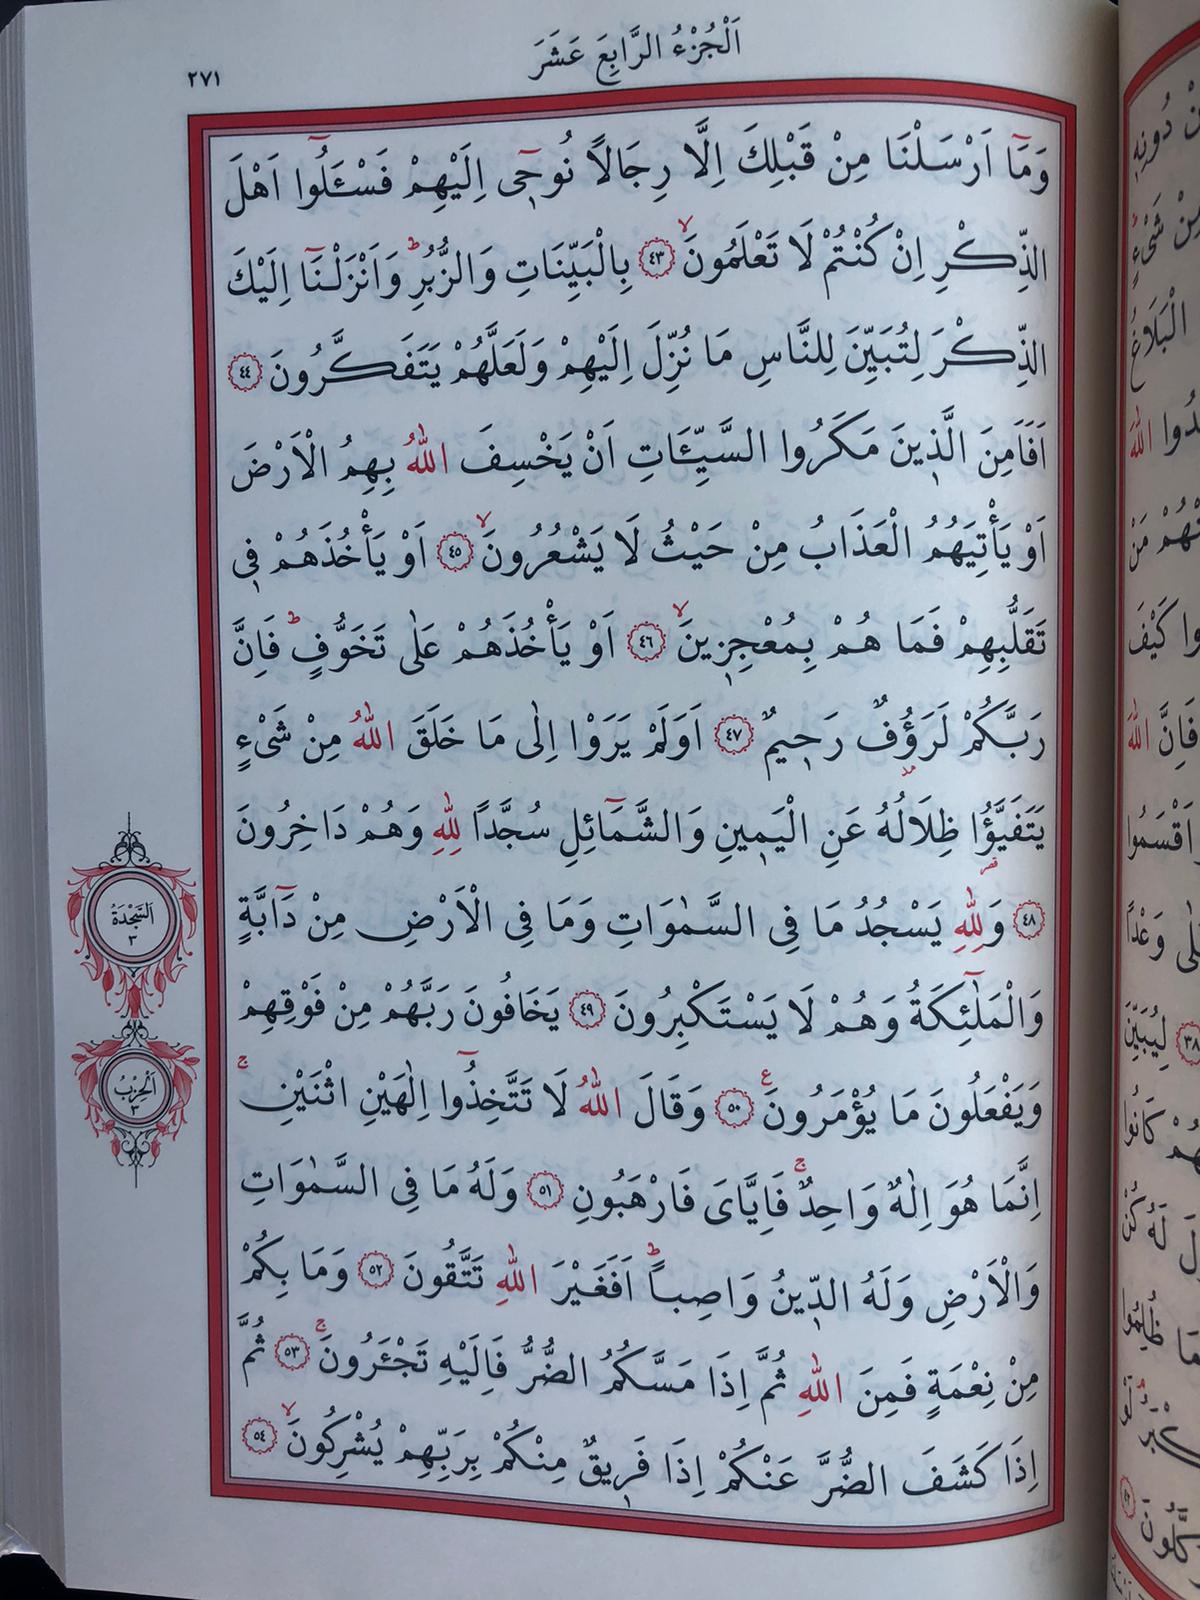 اَلْجُزْءُ الرَّابِعَ عَشَرَ
٢٧١
وَمَٓا اَرْسَلْنَا مِنْ قَبْلِكَ اِلَّا رِجَالًا نُوح۪ٓى اِلَيْهِمْ فَسْـَٔلُٓوا اَهْلَ
الذِّكْرِ اِنْ كُنْتُمْ لَا تَعْلَمُونَۙ ﴿٤٣﴾ بِالْبَيِّنَاتِ وَالزُّبُرِۜ وَاَنْزَلْنَٓا اِلَيْكَ
الذِّكْرَ لِتُبَيِّنَ لِلنَّاسِ مَا نُزِّلَ اِلَيْهِمْ وَلَعَلَّهُمْ يَتَفَكَّرُونَ ﴿٤٤﴾
اَفَاَمِنَ الَّذ۪ينَ مَكَرُوا السَّيِّـَٔاتِ اَنْ يَخْسِفَ اللّٰهُ بِهِمُ الْاَرْضَ
اَوْ يَأْتِيَهُمُ الْعَذَابُ مِنْ حَيْثُ لَا يَشْعُرُونَۙ ﴿٤٥﴾ اَوْ يَأْخُذَهُمْ ف۪ى
تَقَلُّبِهِمْ فَمَا هُمْ بِمُعْجِز۪ينَۙ ﴿٤٦﴾ اَوْ يَأْخُذَهُمْ عَلٰى تَخَوُّفٍۜ فَاِنَّ
رَبَّكُمْ لَرَؤُ۫فٌ رَح۪يمٌ ﴿٤٧﴾ اَوَلَمْ يَرَوْا اِلٰى مَا خَلَقَ اللّٰهُ مِنْ شَىْءٍ
يَتَفَيَّؤُ۬ا ظِلَالُهُ عَنِ الْيَم۪ينِ وَالشَّمَٓائِلِ سُجَّدًا لِلّٰهِ وَهُمْ دَاخِرُونَ
﴿٤٨﴾ وَلِلّٰهِ يَسْجُدُ مَا فِى السَّمٰوَاتِ وَمَا فِى الْاَرْضِ مِنْ دَٓابَّةٍ
وَالْمَلٰٓئِكَةُ وَهُمْ لَا يَسْتَكْبِرُونَ ﴿٤٩﴾ يَخَافُونَ رَبَّهُمْ مِنْ فَوْقِهِمْ
وَيَفْعَلُونَ مَا يُؤْمَرُونَ۟ ﴿٥٠﴾ وَقَالَ اللّٰهُ لَا تَتَّخِذُٓوا اِلٰهَيْنِ اثْنَيْنِۚ
اِنَّمَا هُوَ اِلٰهٌ وَاحِدٌۚ فَاِيَّاىَ فَارْهَبُونِ ﴿٥١﴾ وَلَهُ مَا فِى السَّمٰوَاتِ
وَالْاَرْضِ وَلَهُ الدّ۪ينُ وَاصِبًاۜ اَفَغَيْرَ اللّٰهِ تَتَّقُونَ ﴿٥٢﴾ وَمَا بِكُمْ
مِنْ نِعْمَةٍ فَمِنَ اللّٰهِ ثُمَّ اِذَا مَسَّكُمُ الضُّرُّ فَاِلَيْهِ تَجْـَٔرُونَۚ ﴿٥٣﴾ ثُمَّ
اِذَا كَشَفَ الضُّرَّ عَنْكُمْ اِذَا فَر۪يقٌ مِنْكُمْ بِرَبِّهِمْ يُشْرِكُونَۙ ﴿٥٤﴾
اَلسَّجْدَةُ
٣
اَلْحِزْبُ
٣
دُونِه۪
مِنْ شَىْءٍ
الْبَلَاغُ
اللّٰهَ
مَنْ
كَيْفَ
فَاِنَّ اللّٰهَ
اَقْسَمُوا
وَعْدًا
﴿٣٨﴾ لِيُبَيِّنَ
كَانُوا
لَهُ كُنْ
ظُلِمُوا
لَوْ